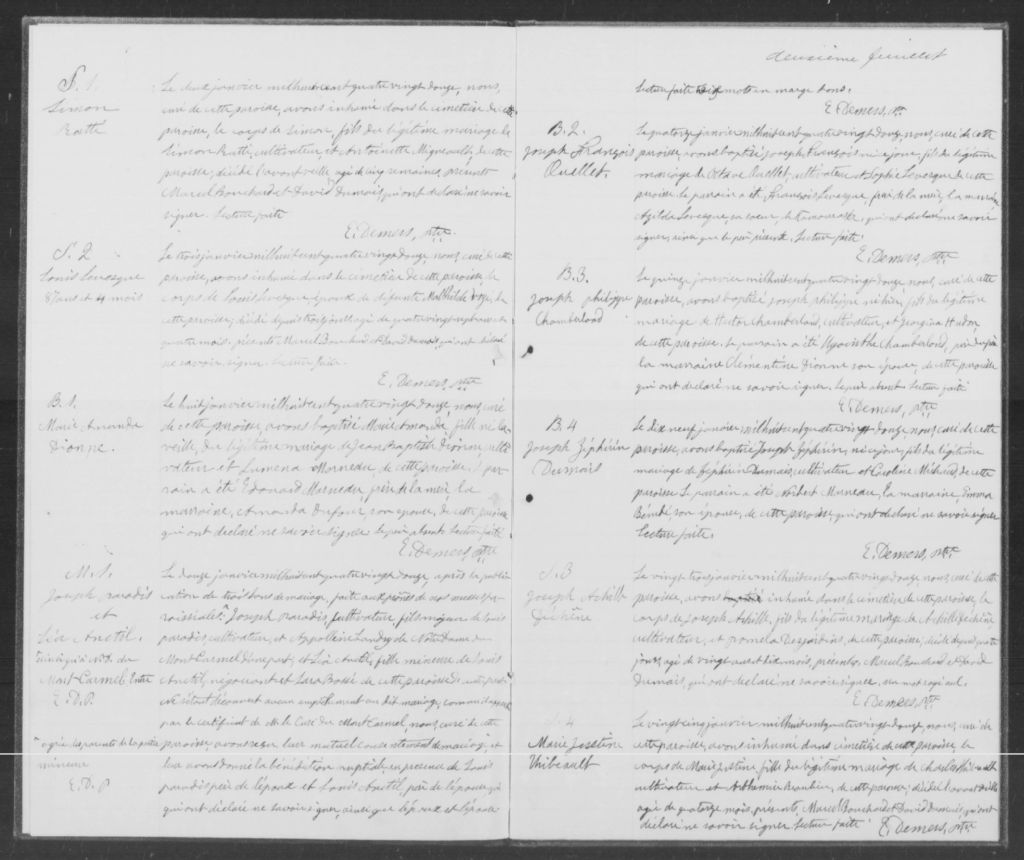 S. 1.
Simon
Ratté
Le deux janvier mil huit cent quatre vingt douze, nous,
curé de cette paroisse, avons inhumé dans le cimetière de cette
paroisse, le corps de Simon, fils du légitime mariage de
Simon Ratté, cultivateur, et Antoinette Migneault, de cette
paroisse, décédé l'avant veille agé de cinq semaines, présents
Marcel Bouchard et David Dumais, qui ont déclaré ne savoir
signer. Lecture faite
E. Demers, Ptre
S. 2
Louis Levesque
87 ans et 4 mois
Le trois janvier mil huit cent quatre vingt douze, nous, curé de cette
paroisse, avons inhumé dans le cimetière de cette paroisse, le
corps de Louis Levesque époux de défunte Mathilde, de
cette paroisse, décédé depuis trois jours agé de quatre vingt sept ans et
quatre mois, présents Marcel Bouchard et David Dumais, qui ont déclaré
ne savoir signer. Lecture faite.
E. Demers, Ptre
B. 1.
Marie Amanda
Dionne.
Le huit janvier mil huit cent quatre vingt douze, nous, curé
de cette paroisse, avons baptisé Marie Amanda, fille née la
veille, du légitime mariage de Jean Baptiste Dionne, culti
vateur et Lumena Morneau, de cette paroisse. Le par
rain a été Edouard Morneau, père de la mère, la
marraine, Amanda Dufour, son épouse, de cette paroisse
qui ont déclaré ne savoir signer. Le père absent. Lecture faite
E. Demers, Ptre
M. 1.
Joseph Paradis
et
Léa Anctil.
N. D. du
Mont Carmel
E. D. P.
" agée des parents de la partie
mineure
E. D. P
Le douze janvier mil huit cent quatre vingt douze, après la publi
cation de trois bans de mariage, faite aux prônes de nos messes pa
roissiales, Joseph Paradis, cultivateur, fils majeur de Louis
Paradis, cultivateur, et Appoline Landry de Notre Dame du
Mont Carmel d'une part, et Léa Anctil, fille mineure de Louis
Anctil, négociant et Sara Bossé de cette paroisse d'autre part
Ne s'étant découvert aucun empêchement au dit mariage, comme il appert
par le certificat de M. le Curé du Mont Carmel, nous, curé de cette
paroisse avons reçu leur mutuel consentement de mariage, et
leur avons donné la bénédiction nuptiale en présence de Louis
Paradis père de l'époux et Louis Anctil, père de l'épouse, qui
qui ont déclaré ne savoir signer, ainsi que l'époux et l'épouse
deuxième feuillet
Lecture faite mots en marge bons.
E. Demers, Ptre
B. 2.
Joseph François
Ouellet.
Le quatorze janvier mil huit cent quatre vingt douze, nous, curé de cette
paroisse, avons baptisé Joseph François né ce jour, fils du légitime
mariage de Octave Ouellet, cultivateur et Sophie Levesque de cette
paroisse. Le parrain a été François Levesque frère de la mère, la marraine
Azilda Levesque sa soeur, de Kamouraska, qui ont déclaré ne savoir
signer, ainsi que le père présent. Lecture faite.
E. Demers, Ptre
B. 3.
Joseph Philippe
Chamberland
Le quinze janvier mil huit cent quatre vingt douze, nous, curé de cette
paroisse, avons baptisé Joseph Philippe né hier, fils du légitime
mariage de Hector Chamberland, cultivateur, et Georgina Hudon,
de cette paroisse. Le parrain a été Hyacinthe Chamberland,
la marraine Clémentine Dionne son épouse, de cette paroisse
qui ont déclaré ne savoir signer. Le père absent. Lecture faite
E. Demers, Ptre
B. 4
Joseph Zéphirin
Dumais
Le dix neuf janvier mil huit cent quatre vingt douze, nous, curé de cette
paroisse, avons baptisé Joseph Zéphirin, né ce jour, fils du légitime
mariage de Zéphirin Dumais, cultivateur et Caroline Michaud, de cette
paroisse. Le parrain a été Norbert Morneau, la marraine, Emma
Bérubé, son épouse, de cette paroisse, qui ont déclaré ne savoir signer
Lecture faite.
E. Demers, Ptre
S. 3
Joseph Achille
Dechêne
Le vingt trois janvier mil huit cent quatre vingt douze nous, curé de cette
paroisse, avons inhumé dans le cimetière de cette paroisse, le
corps de Joseph Achille, fils du légitime mariage de Achille Dechêne
cultivateur, et Desjardins, de cette paroisse, décédé depuis quatre
jours, agé de mois, présents, Marcel Bouchard et David
Dumais, qui ont déclaré ne savoir signer, un mot rayé nul.
E. Demers, Ptre
S. 4
Marie Justine
Thibeault
Le vingt cinq janvier mil huit cent quatre vingt douze, nous, curé de
cette paroisse, avons inhumé dans cimetière de cette paroisse le
corps de Marie Justine, fille du légitime mariage de Charles Thibeault
cultivateur et de cette paroisse, décédée l'avant veille
agée de quatorze mois, présents, Marcel Bouchard et David Dumais, qui ont
déclaré ne savoir signer. Lecture faite
E. Demers, Ptre